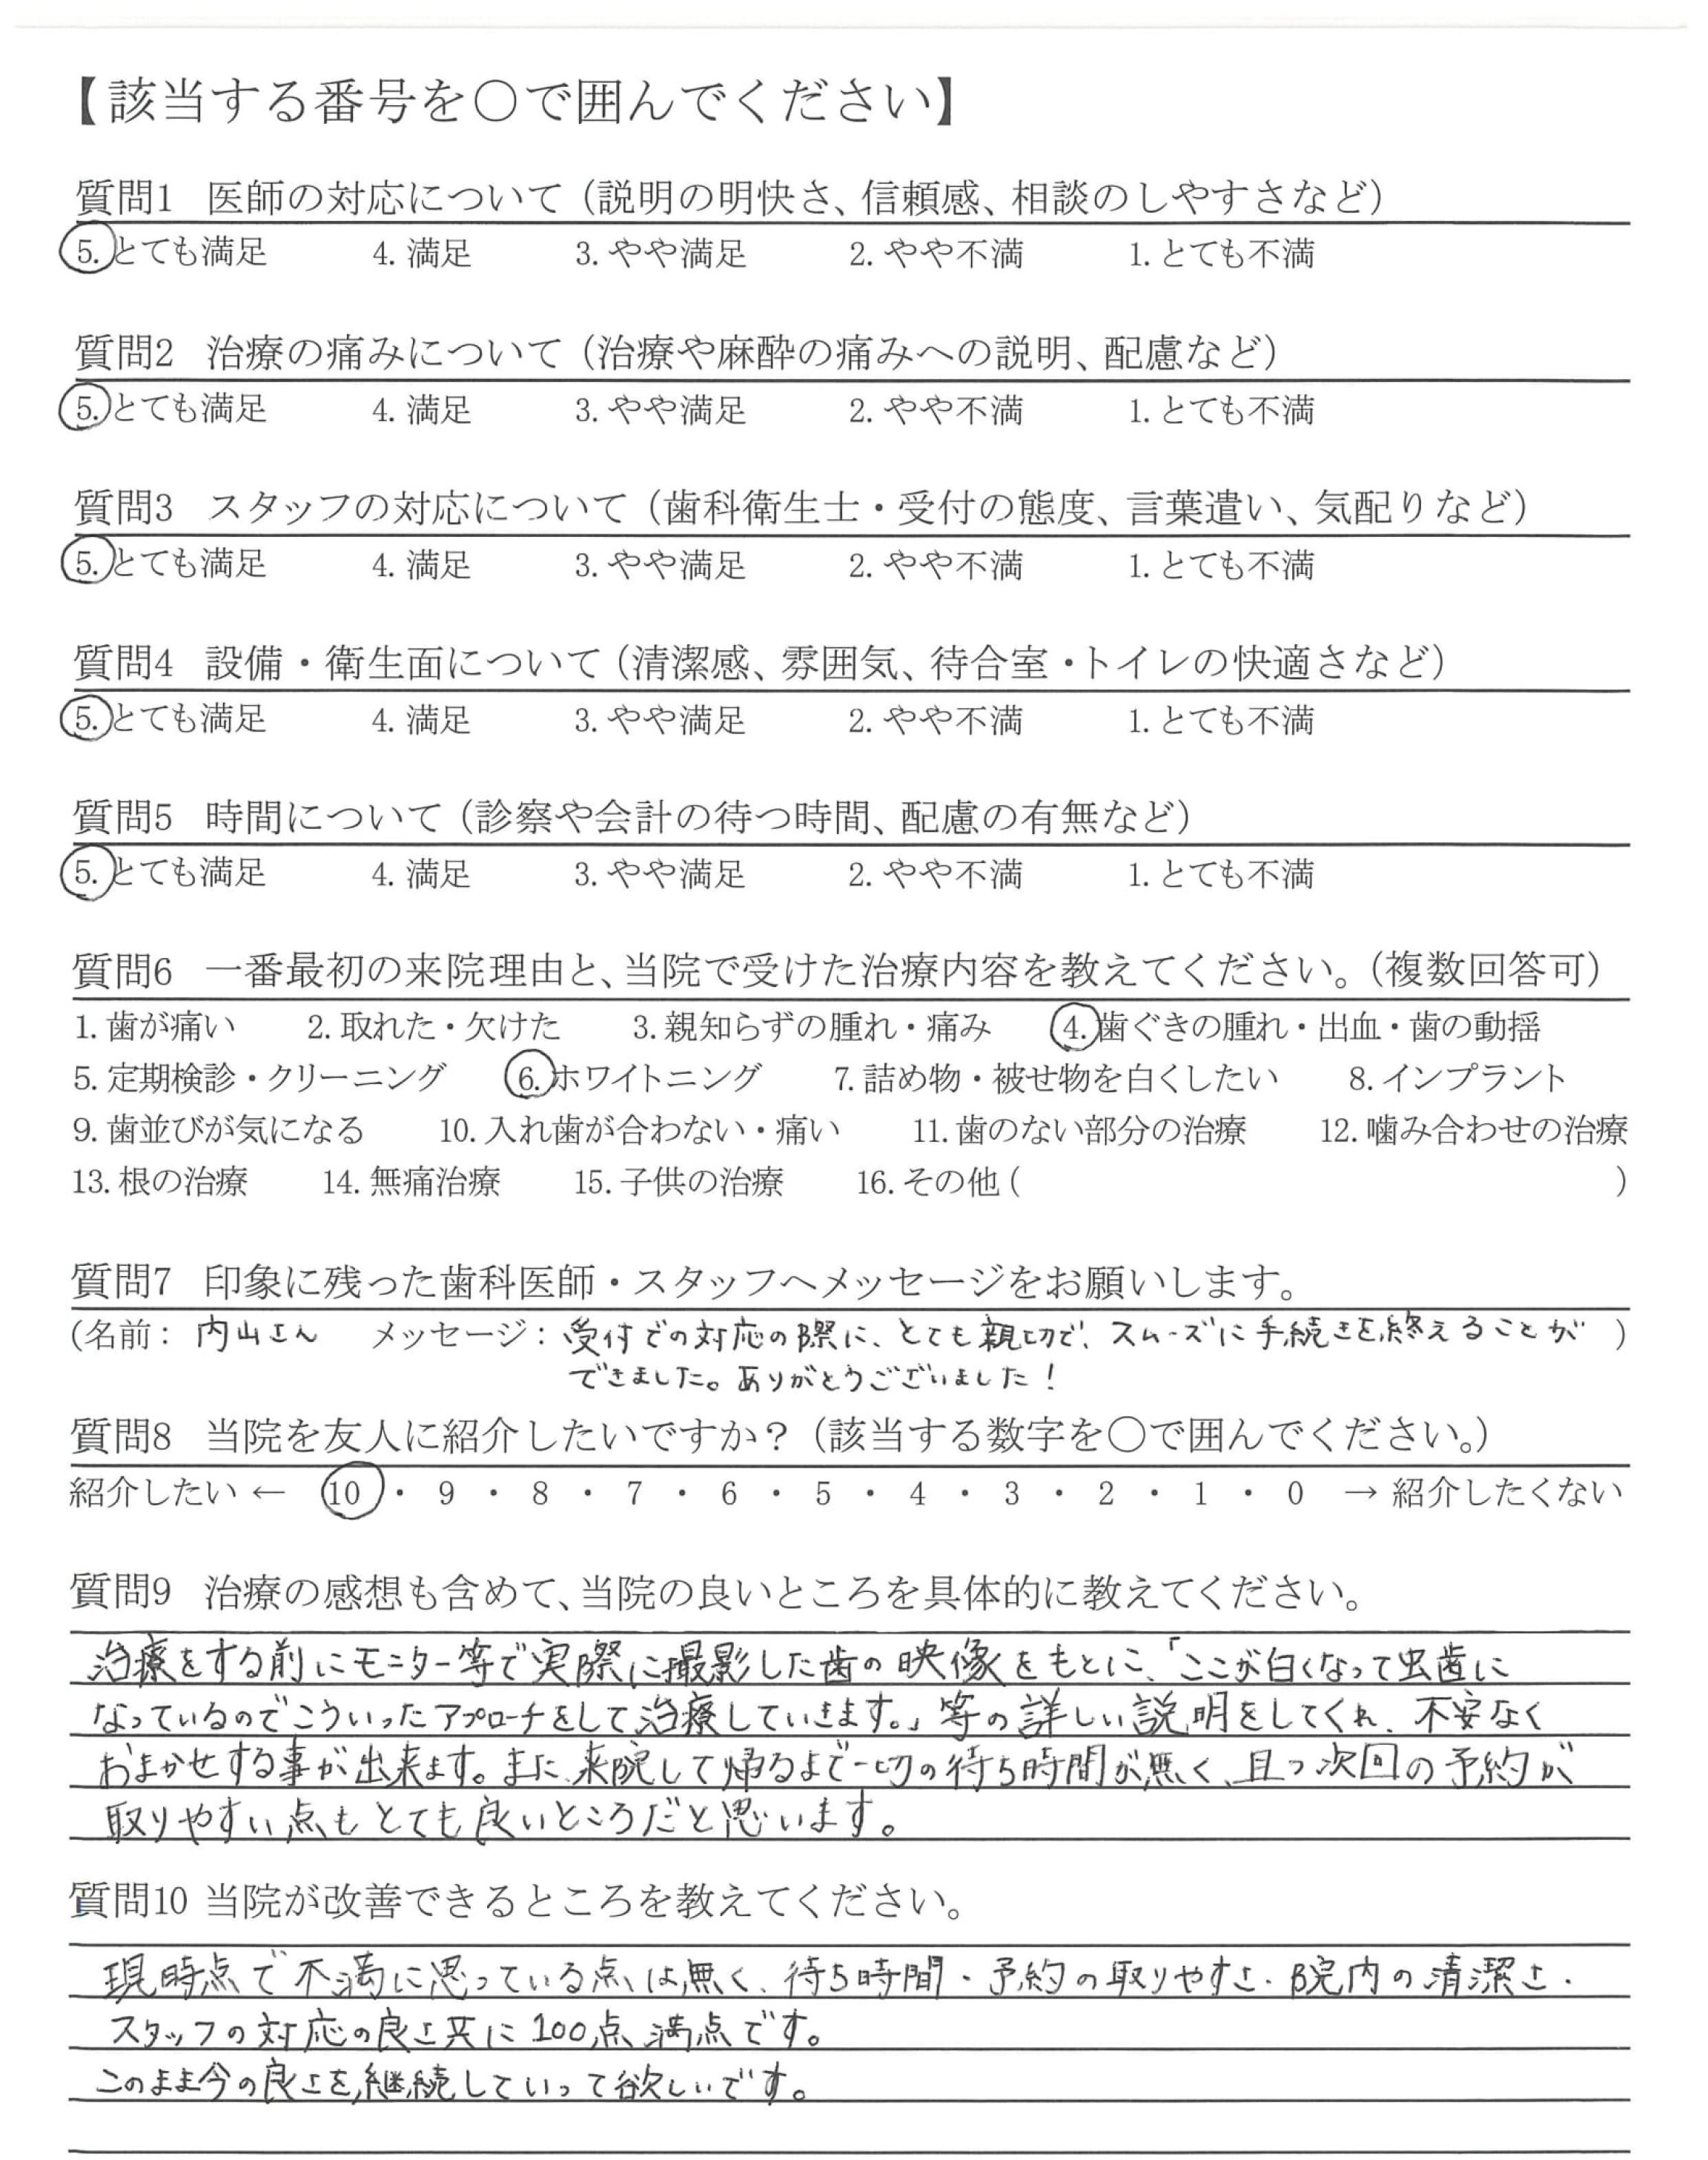 【該当する番号を〇で囲んでください】
質問1 医師の対応について（説明の明快さ、信頼感、相談のしやすさなど）
5. とても満足 4. 満足 3. やや満足 2. やや不満 1. とても不満
質問2 治療の痛みについて（治療や麻酔の痛みへの説明、配慮など）
5. とても満足 4. 満足 3. やや満足 2. やや不満 1. とても不満
質問3 スタッフの対応について（歯科衛生士・受付の態度、言葉遣い、気配りなど）
5. とても満足 4. 満足 3. やや満足 2. やや不満 1. とても不満
質問4 設備・衛生面について（清潔感、雰囲気、待合室・トイレの快適さなど）
5. とても満足 4. 満足 3. やや満足 2. やや不満 1. とても不満
質問5 時間について（診察や会計の待つ時間、配慮の有無など）
5. とても満足 4. 満足 3. やや満足 2. やや不満 1. とても不満
質問6 一番最初の来院理由と、当院で受けた治療内容を教えてください。（複数回答可）
1. 歯が痛い 2. 取れた・欠けた 3. 親知らずの腫れ・痛み 4. 歯ぐきの腫れ・出血・歯の動揺
5. 定期検診・クリーニング 6. ホワイトニング 7. 詰め物・被せ物を白くしたい 8. インプラント
9. 歯並びが気になる 10. 入れ歯が合わない・痛い 11. 歯のない部分の治療 12. 噛み合わせの治療
13. 根の治療 14. 無痛治療 15. 子供の治療 16. その他 ( )
質問7 印象に残った歯科医師・スタッフへメッセージをお願いします。
(名前： 内山さん メッセージ： 受付での対応の際に、とても親切で、スムーズに手続きを終えることが )
できました。ありがとうございました！
質問8 当院を友人に紹介したいですか？（該当する数字を〇で囲んでください。）
紹介したい ← 10 ・ 9 ・ 8 ・ 7 ・ 6 ・ 5 ・ 4 ・ 3 ・ 2 ・ 1 ・ 0 → 紹介したくない
質問9 治療の感想も含めて、当院の良いところを具体的に教えてください。
治療をする前にモニター等で実際に撮影した歯の映像をもとに、「ここが白くなって虫歯に
なっているのでこういったアプローチをして治療していきます。」等の詳しい説明をしてくれ、不安なく
おまかせする事が出来ます。また、来院して帰るまで一切の待ち時間が無く、且つ次回の予約が
取りやすい点もとても良いところだと思います。
質問10 当院が改善できるところを教えてください。
現時点で不満に思っている点は無く、待ち時間・予約の取りやすさ・院内の清潔さ・
スタッフの対応の良さ共に100点満点です。
このまま今の良さを継続していって欲しいです。